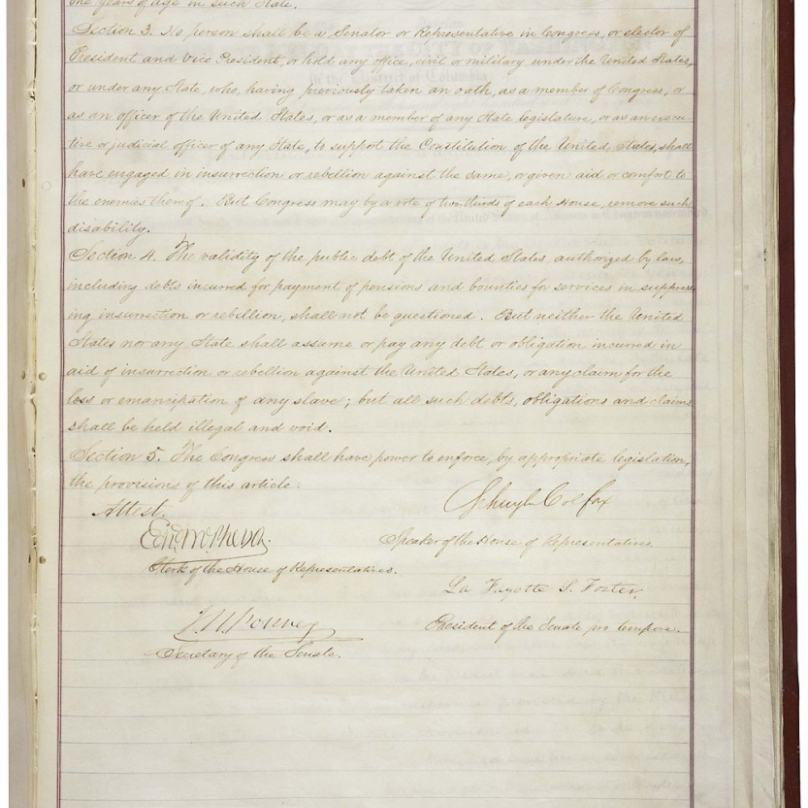 one years of age in such State.
Section 3. No person shall be a Senator or Representative in Congress, or elector of
President and Vice President, or hold any office, civil or military under the United States,
or under any State, who, having previously taken an oath, as a member of Congress, or
as an officer of the United States, or as a member of any State legislature, or as an execu
tive or judicial officer of any State, to support the Constitution of the United States, shall
have engaged in insurrection or rebellion against the same, or given aid or comfort to
the enemies thereof. But Congress may by a vote of two-thirds of each House, remove such
disability.
Section 4. The validity of the public debt of the United States, authorized by law,
including debts incurred for payment of pensions and bounties for services in suppress
ing insurrection or rebellion, shall not be questioned. But neither the United
States nor any State shall assume or pay any debt or obligation incurred in
aid of insurrection or rebellion against the United States, or any claim for the
loss or emancipation of any slave; but all such debts, obligations and claims
shall be held illegal and void.
Section 5. The Congress shall have power to enforce, by appropriate legislation,
the provisions of this article.
Attest.
Schuyler Colfax
Edwd McPherson.
Speaker of the House of Representatives.
Clerk of the House of Representatives.
La Fayette S. Foster.
J. W. Forney
President of the Senate pro tempore.
Secretary of the Senate.